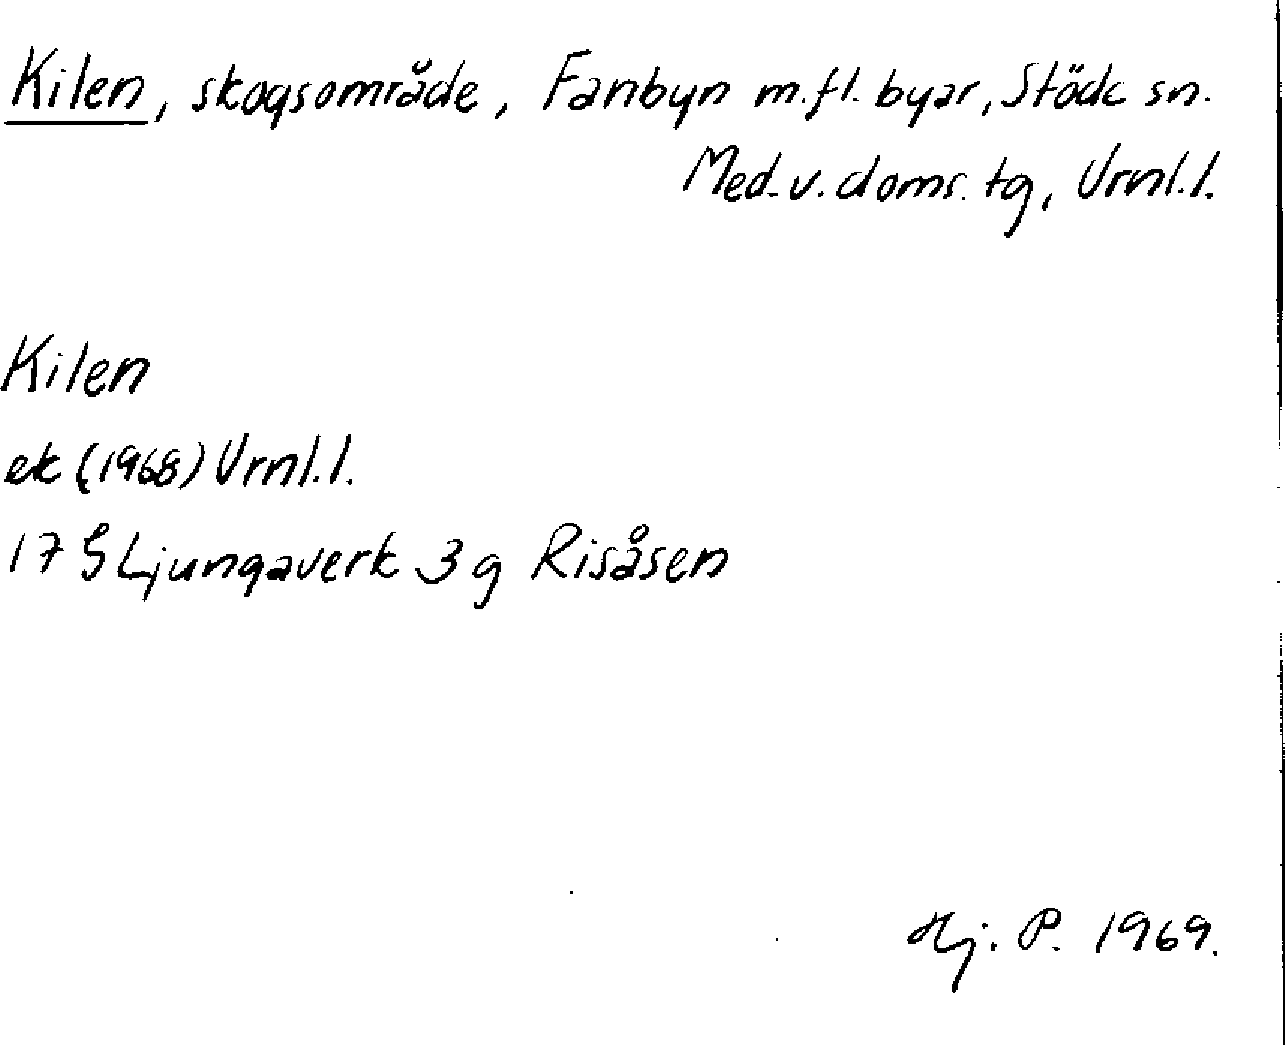 Kilen, skogsområde, Fanbyn m.fl. byar, Stöde sn.
Med. v. doms. tg, Vrnl. l.
Kilen
ek (1968) Vrnl. l.
17 G Ljungaverk 3 g Risåsen
Hj. P. 1969.